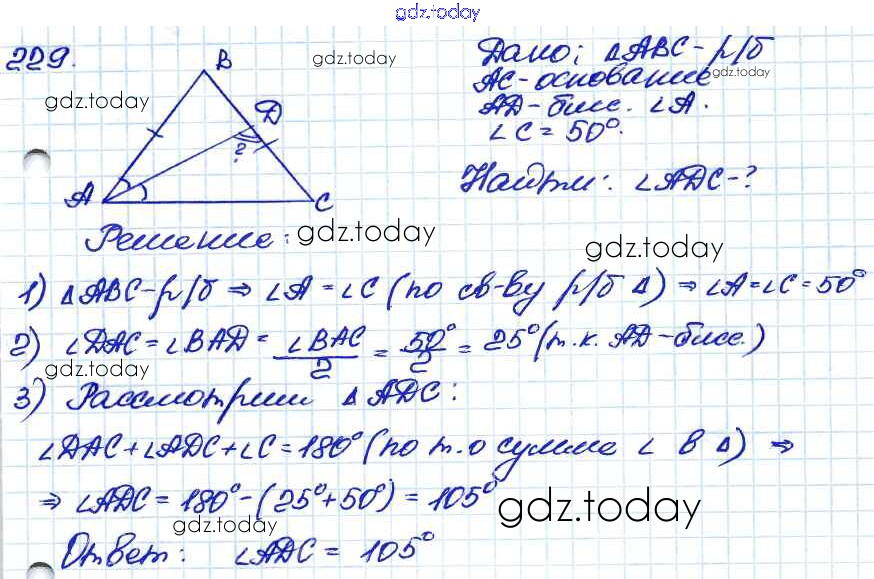 gdz.today
229.
B
gdz.today
Дано: ΔABC - р/б
AC - основание
gdz.today
gdz.today
D
AD - бисс. ∠A.
∠C = 50°.
?
Найти: ∠ADC - ?
A
C
Решение:
gdz.today
gdz.today
1) ΔABC - р/б ⇒ ∠A = ∠C (по св-ву р/б Δ) ⇒ ∠A = ∠C = 50°
2) ∠DAC = ∠BAD = ∠BAC/2 = 50°/2 = 25° (т.к. AD - бисс.)
gdz.today
3) Рассмотрим ΔADC:
∠DAC + ∠ADC + ∠C = 180° (по т. о сумме ∠ в Δ) ⇒
⇒ ∠ADC = 180° - (25° + 50°) = 105°
gdz.today
gdz.today
Ответ: ∠ADC = 105°